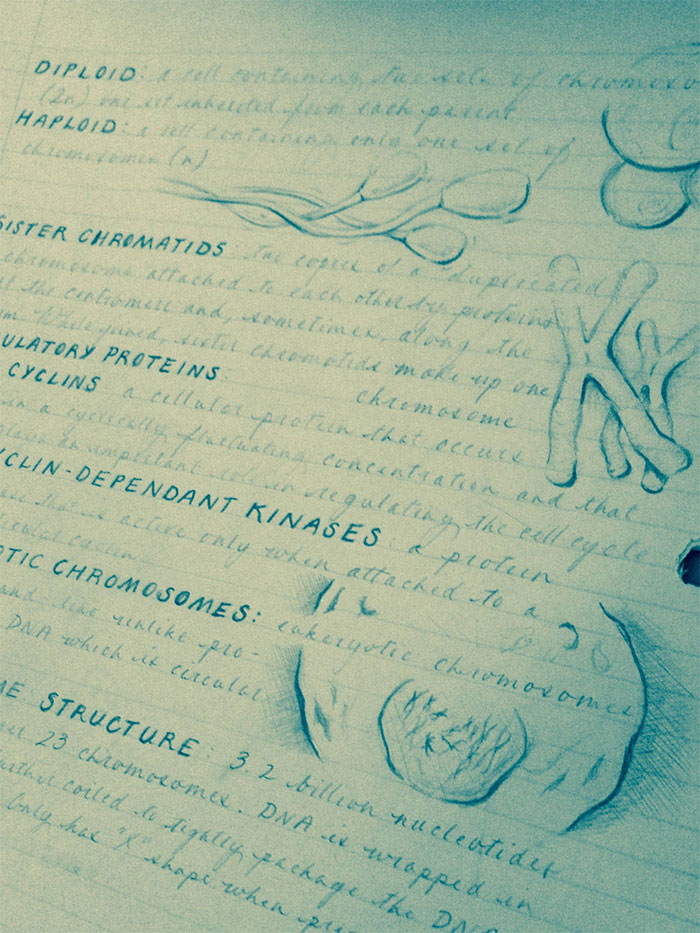 DIPLOID: a cell containing two sets of chromoso
(2n) one set inherited from each parent
HAPLOID: a cell containing only one set of
chromosomes (n)
SISTER CHROMATIDS: two copies of a duplicated
chromosome attached to each other by proteins
at the centromere and, sometimes, along the
While joined, sister chromatids make up one
chromosome
ULATORY PROTEINS:
CYCLINS a cellular protein that occurs
in a cyclically fluctuating concentration and that
plays an important role in regulating the cell cycle
YCLIN-DEPENDANT KINASES: a protein
ase that is active only when attached to a
cyclin
OTIC CHROMOSOMES: eukaryotic chromosomes
and line unlike pro-
DNA which is circular
ME STRUCTURE: 3.2 billion nucleotides
23 chromosomes. DNA is wrapped in
further coiled to tightly package the DNA
Only has "X" shape when